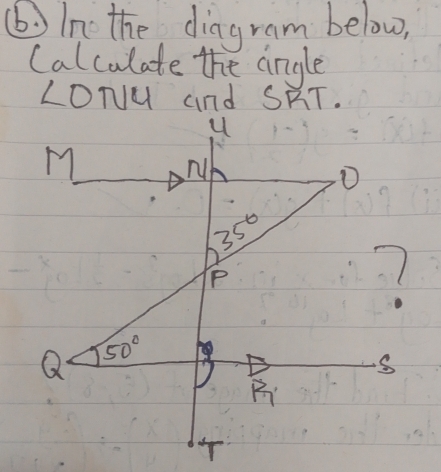 (b.) In the diagram below,
Calculate the angle
∠ONU and SRT.
U
M N O
35°
P
?
Q 50° S
R
T